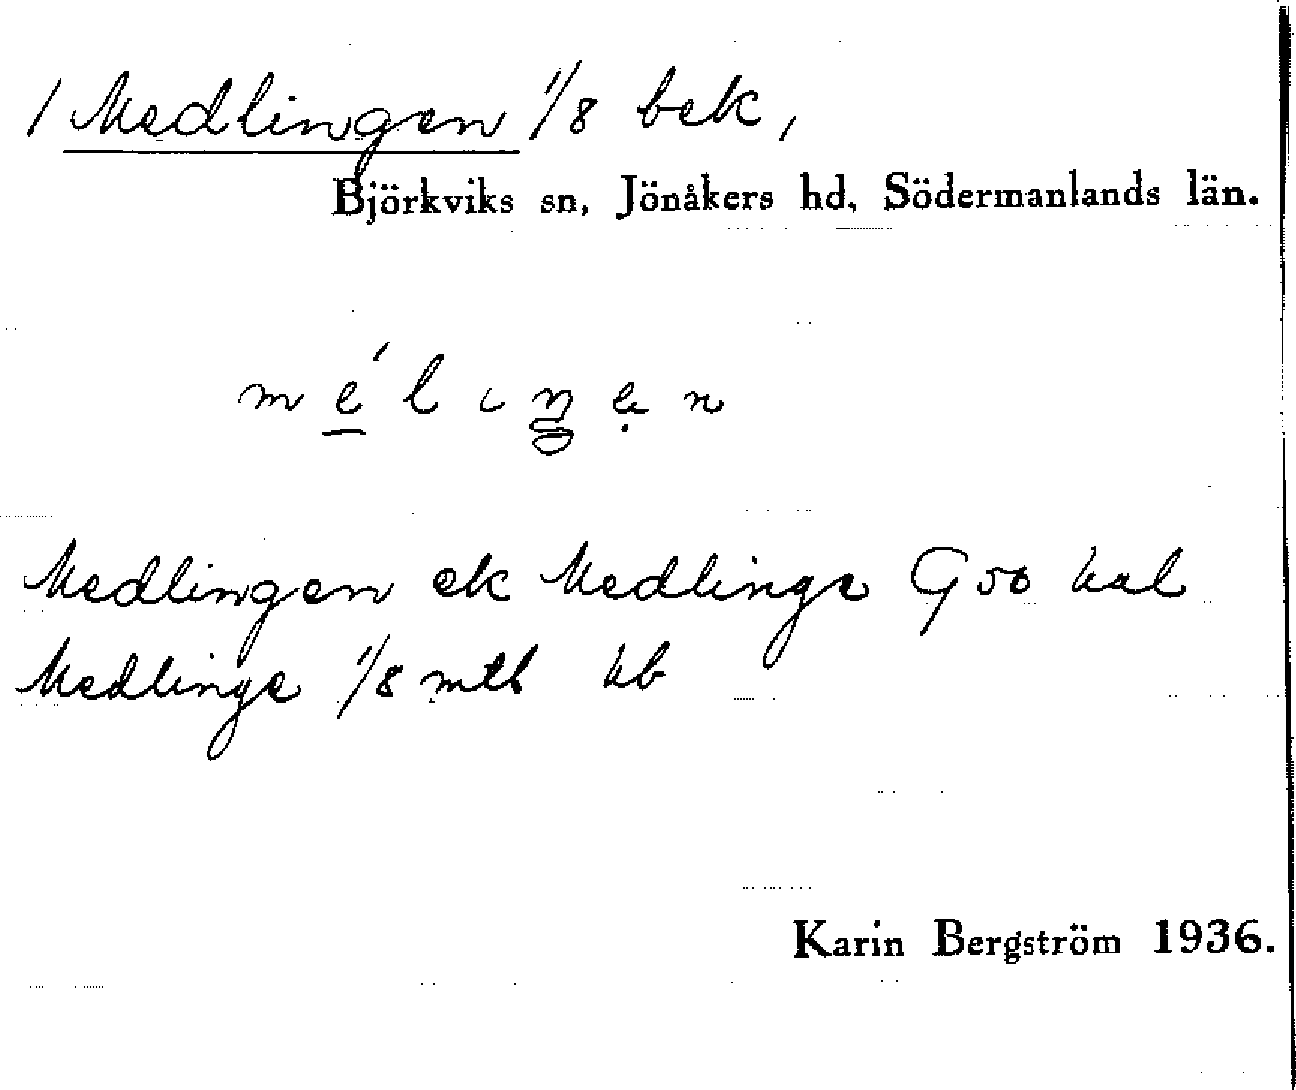 / Medlingen 1/8 bek,
Björkviks sn, Jönåkers hd, Södermanlands län.
mé̱lıŋẹn
Medlingen ek Medlinge G 50 kal
Medlinge 1/8 mtl kb
Karin Bergström 1936.